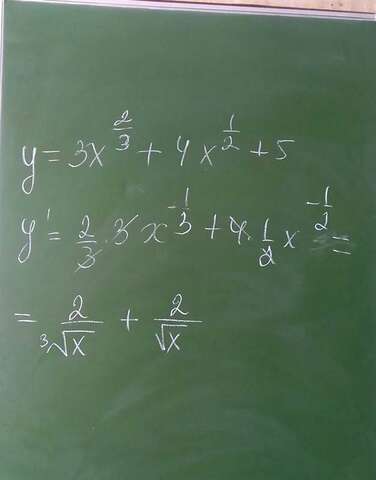 y = 3x^{2/3} + 4x^{1/2} + 5
y' = 2/3 · 3 x^{-1/3} + 4 · 1/2 x^{-1/2} =
= 2/∛x + 2/√x